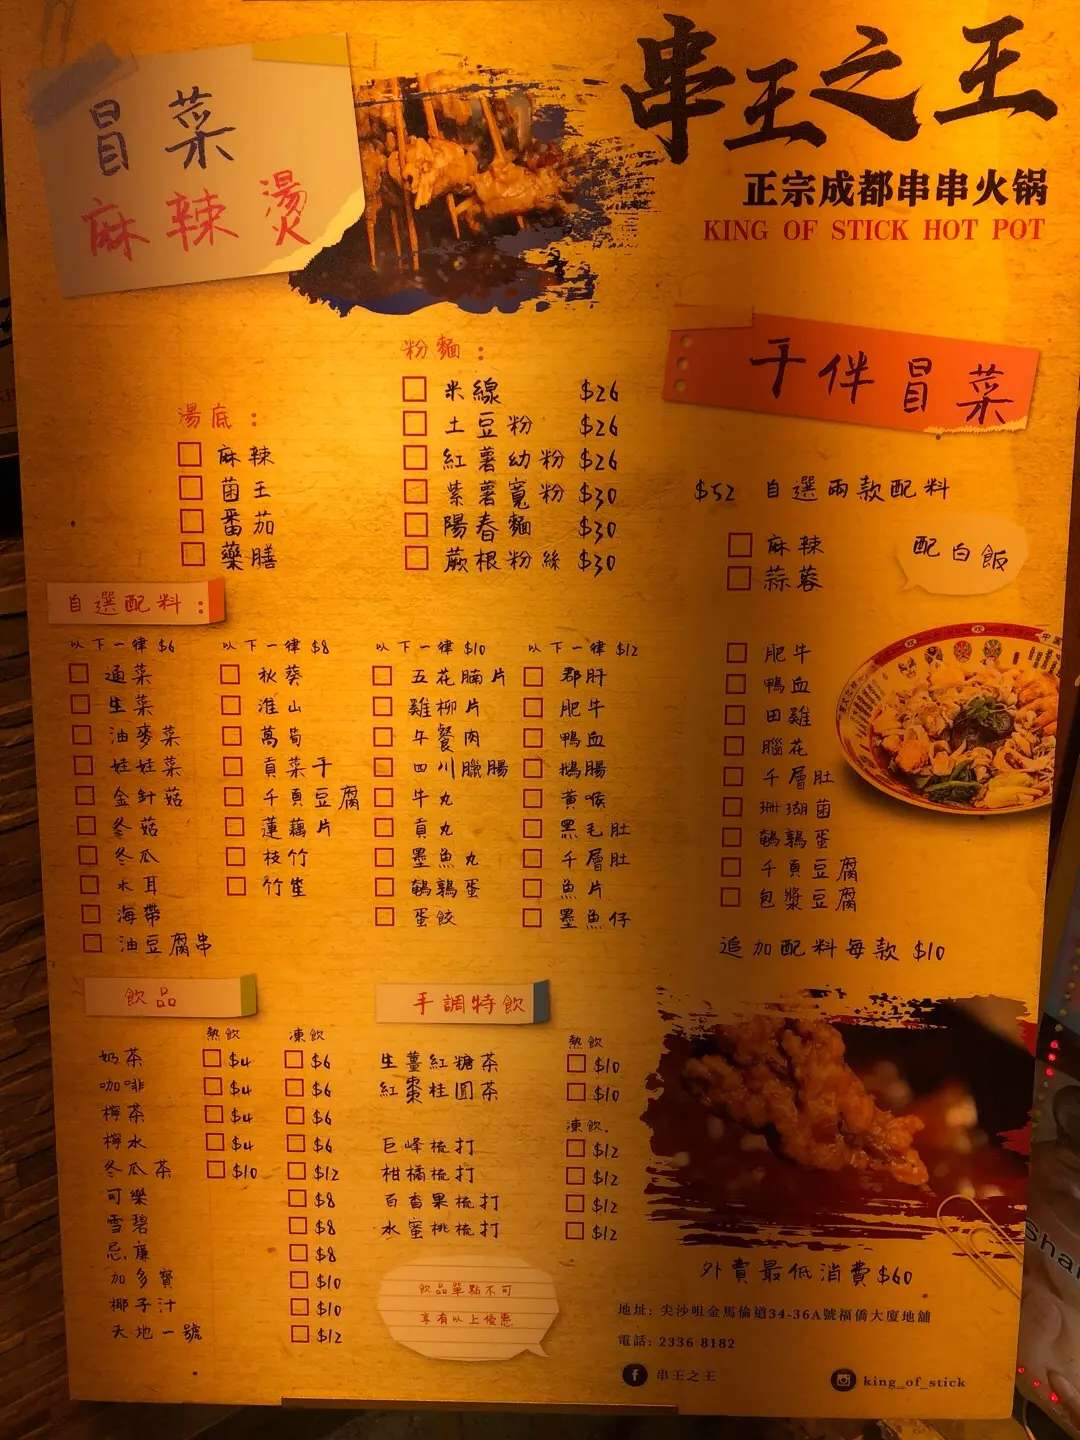 冒菜
麻辣燙
串王之王
正宗成都串串火锅
KING OF STICK HOT POT
湯底：
麻辣
菌王
番茄
藥膳
粉麵：
米線 $26
土豆粉 $26
紅薯幼粉 $26
紫薯寬粉 $30
陽春麵 $30
蕨根粉絲 $30
干伴冒菜
$52 自選兩款配料
麻辣
蒜蓉
配白飯
肥牛
鴨血
田雞
腦花
千層肚
珊瑚菌
鵪鶉蛋
千頁豆腐
包漿豆腐
追加配料每款 $10
自選配料：
以下一律 $6
通菜
生菜
油麥菜
娃娃菜
金針菇
冬菇
冬瓜
木耳
海帶
油豆腐串
以下一律 $8
秋葵
淮山
萵筍
貢菜干
千頁豆腐
蓮藕片
枝竹
竹笙
以下一律 $10
五花腩片
雞柳片
午餐肉
四川臘腸
牛丸
貢丸
墨魚丸
鵪鶉蛋
蛋餃
以下一律 $12
郡肝
肥牛
鴨血
鵝腸
黃喉
黑毛肚
千層肚
魚片
墨魚仔
飲品
熱飲 凍飲
奶茶 $4 $6
咖啡 $4 $6
檸茶 $4 $6
檸水 $4 $6
冬瓜茶 $10 $12
可樂 $8
雪碧 $8
忌廉 $8
加多寶 $10
椰子汁 $10
天地一號 $12
手調特飲
熱飲
生薑紅糖茶 $10
紅棗桂圓茶 $10
凍飲.
巨峰梳打 $12
柑橘梳打 $12
百香果梳打 $12
水蜜桃梳打 $12
飲品單點不可
享有以上優惠
外賣最低消費$60
地址: 尖沙咀金馬倫道34-36A號福僑大廈地舖
電話: 2336 8182
串王之王
king_of_stick